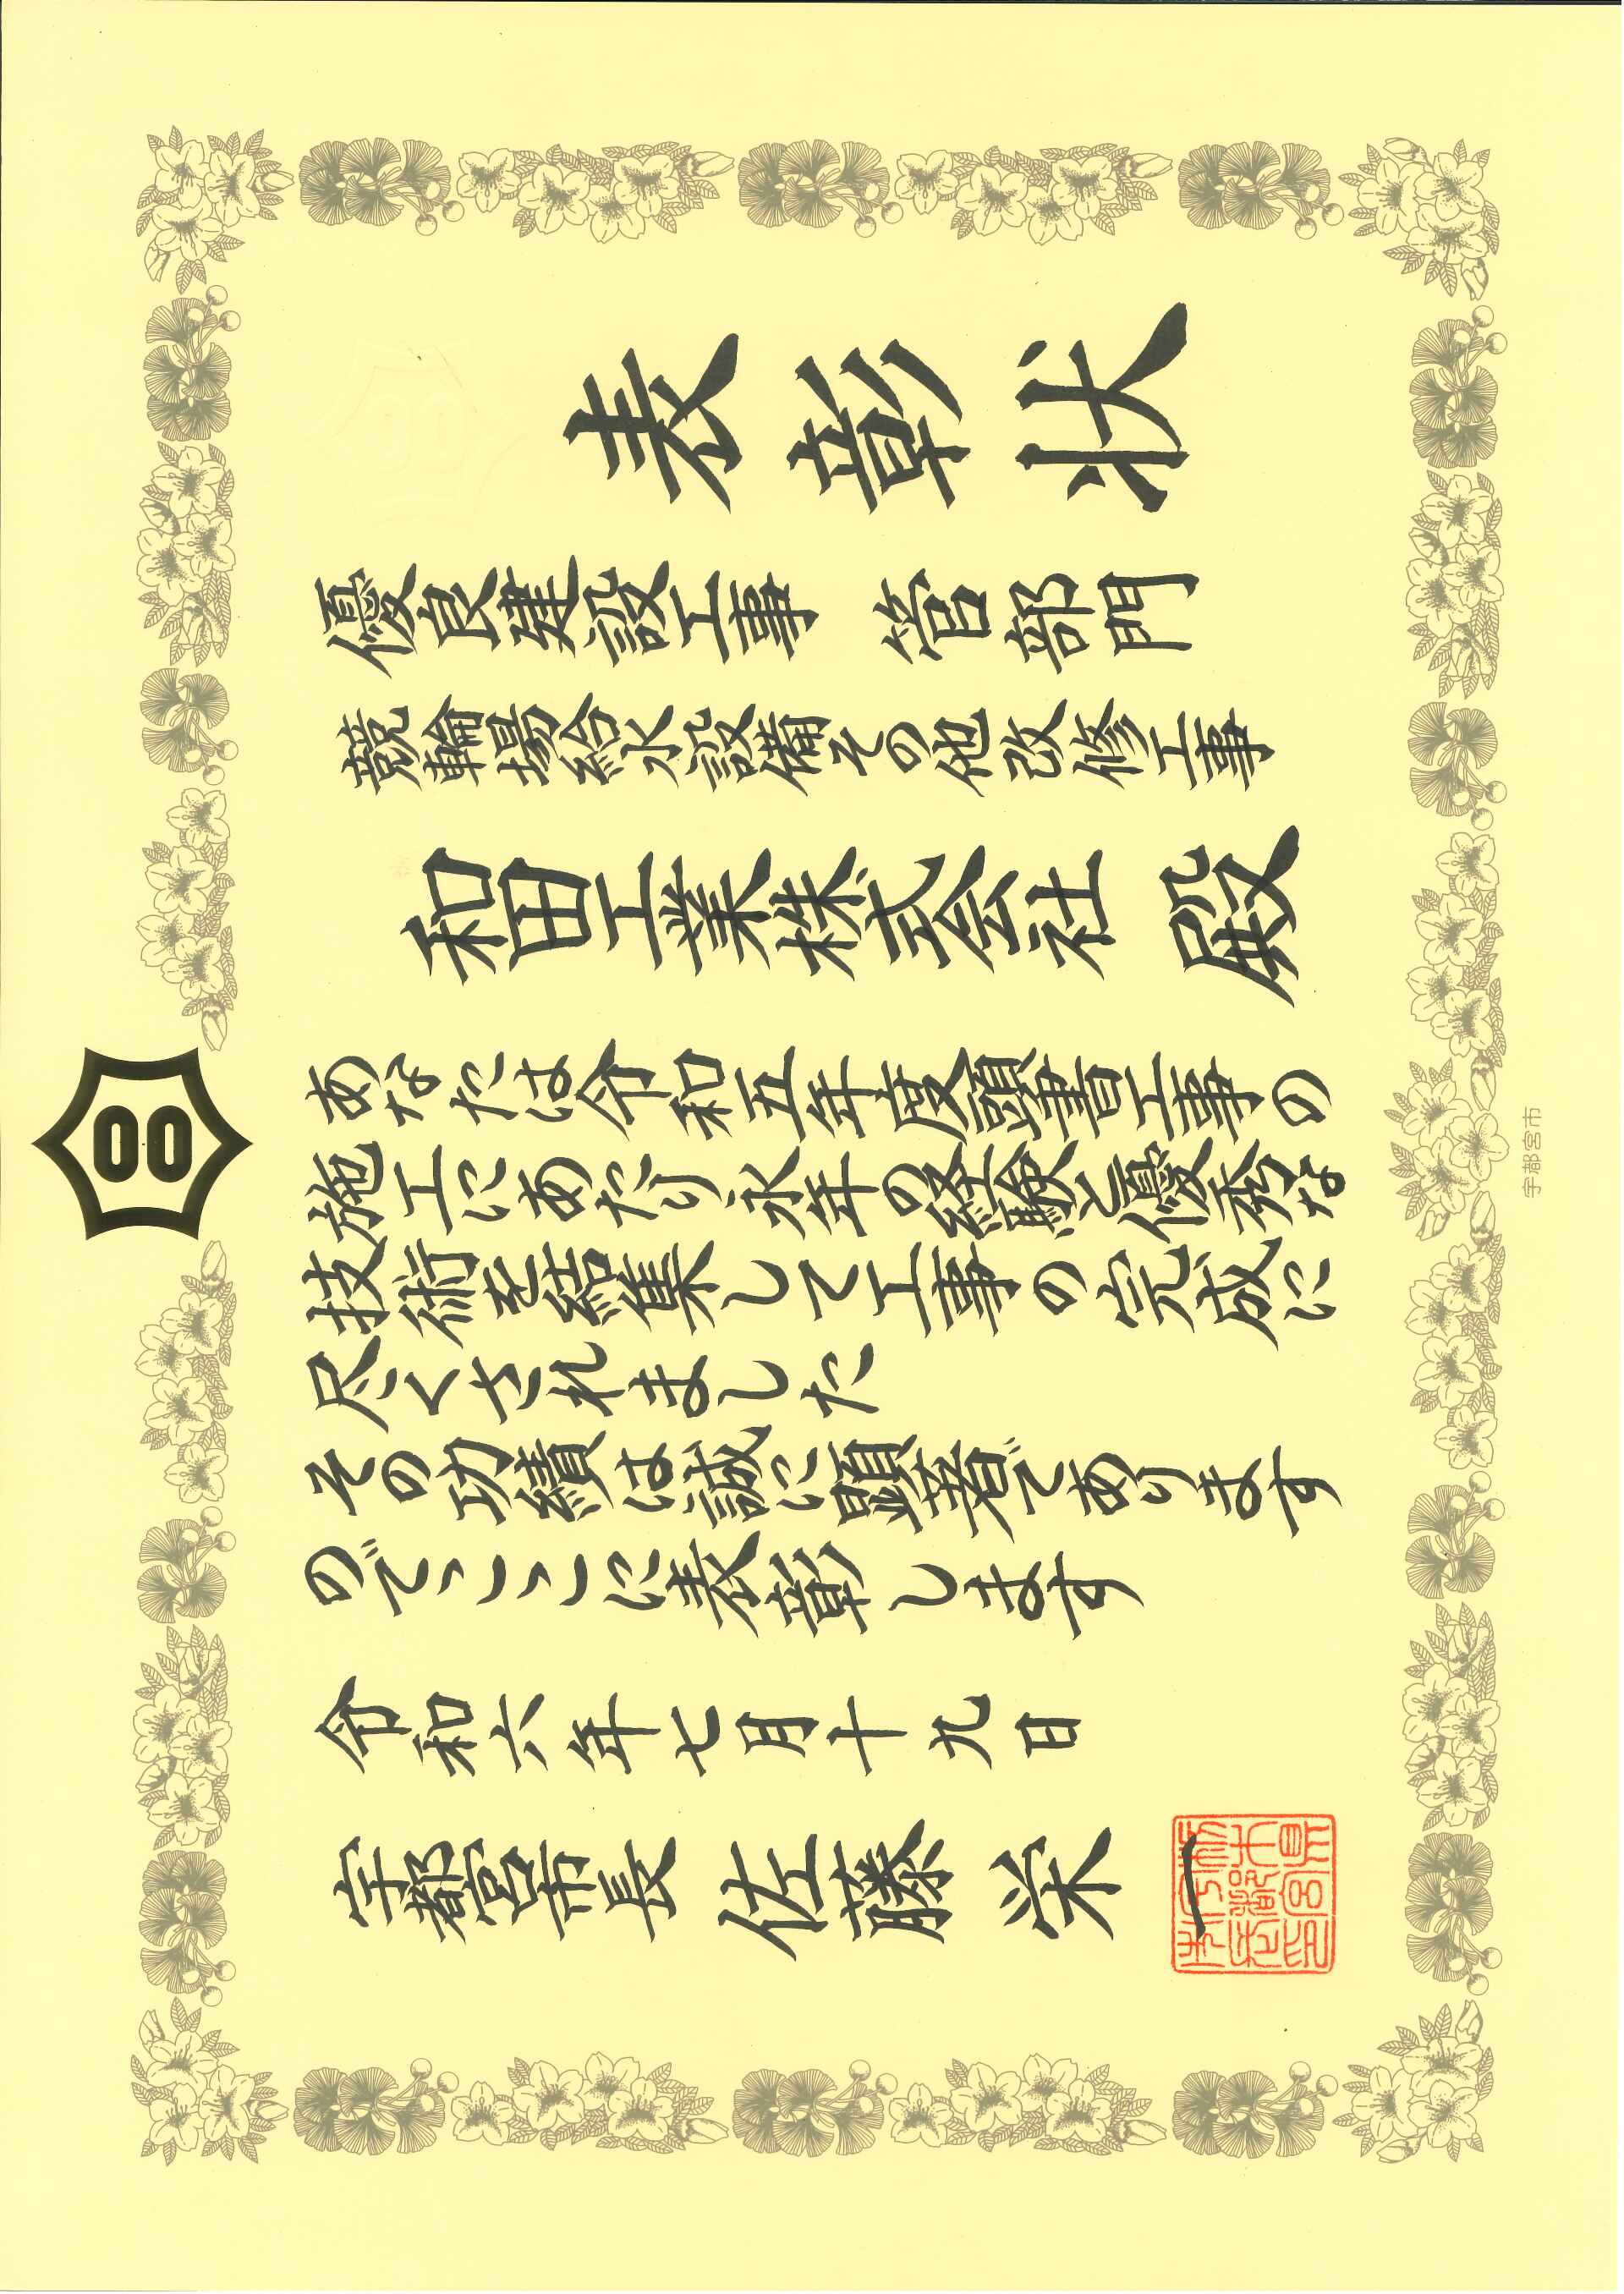 表彰状
優良建設工事 管部門
競輪場給水設備その他改修工事
和田工業株式会社 殿
あなたは令和五年度頭書工事の
施工にあたり永年の経験と優秀な
技術を結集して工事の完成に
尽くされました
その功績は誠に顕著であります
のでここに表彰します
令和六年七月十九日
宇都宮市長 佐藤栄一
宇都宮市